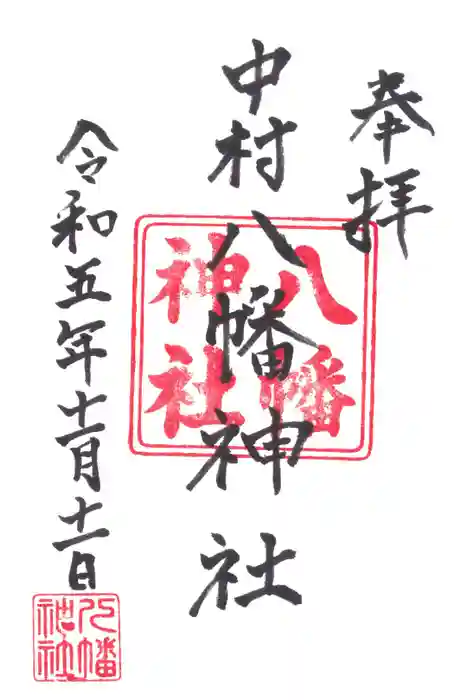 奉拝
中村八幡神社
八幡
神社
令和五年十一月十一日
八幡
神社